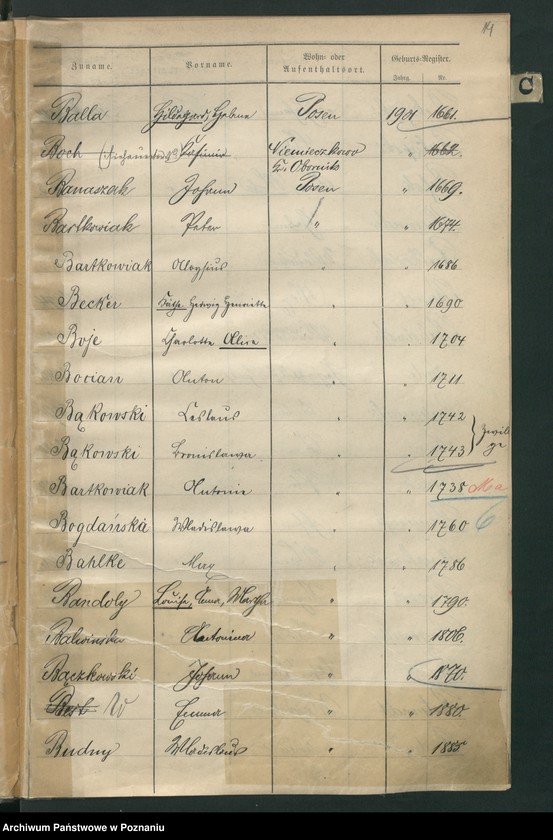 14
Zuname. Vorname. Wohn- oder Aufenthaltsort. Geburts-Register.
Jahrg. Nr.
C
Balla Hildegard, Helene Posen 1901 1661.
Boch Kasimir Niemieczkowo 1662.
Kr. Obornik
Banaszak Johann Posen " 1669.
Bartkowiak Peter " " 1674.
Bartkowiak Aloysius " " 1686
Becker Käthe Hedwig Henriette " 1690
Boje Charlotte Alice " " 1704
Bocian Anton " " 1711
Bąkowski Ceslaus " " 1742
Zwillinge
Bąkowski Bronislawa " " 1743
Bartkowiak Antonie " " 1738 Ma
Bogdańska Wladislawa " " 1760 6
Bahlke Max " " 1786
Bandoly Louise, Anna, Martha " " 1790.
Balwinska Antonina " " 1806.
Bączkowski Johann " " 1870.
Emma " " 1880.
Budny Wladislaus " " 1885
Archiwum Państwowe w Poznaniu